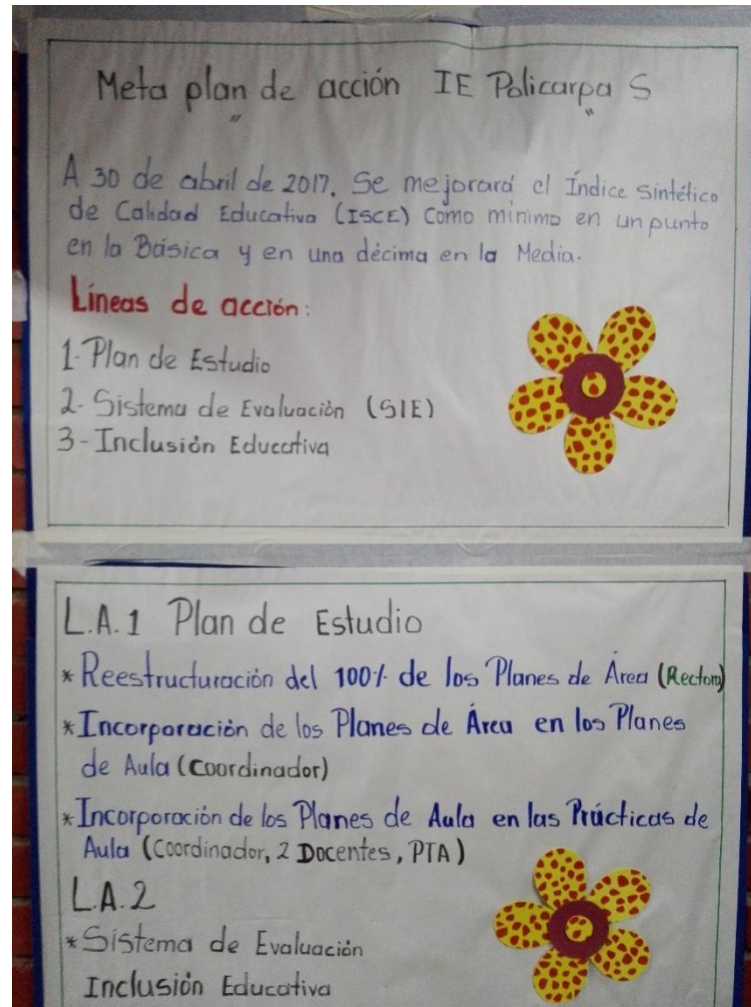 Meta plan de acción IE Policarpa S
A 30 de abril de 2017. Se mejorará el Índice Sintético
de Calidad Educativa (ISCE) como mínimo en un punto
en la Básica y en una décima en la Media.
Líneas de acción:
1. Plan de Estudio
2- Sistema de Evaluación (SIE)
3-Inclusión Educativa
L.A.1 Plan de Estudio
*Reestructuración del 100% de los Planes de Área (Rectora)
*Incorporación de los Planes de Área en los Planes
de Aula (Coordinador)
*Incorporación de los Planes de Aula en las Prácticas de
Aula (Coordinador, 2 Docentes, PTA)
L.A.2
*Sistema de Evaluación
Inclusión Educativa